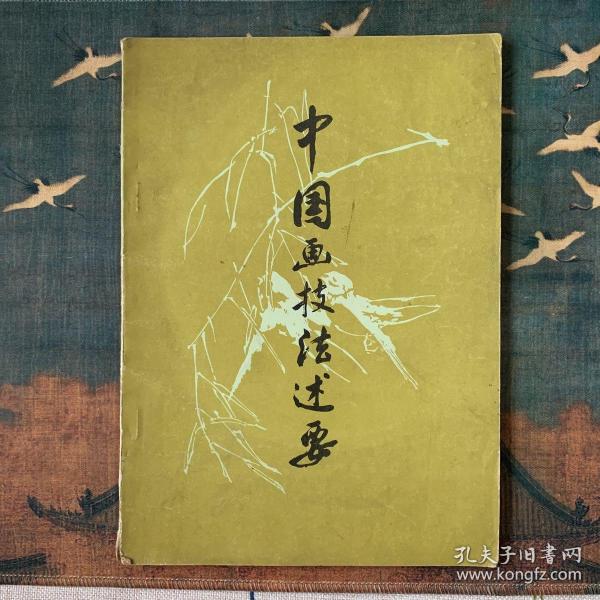 中国画技法述要
孔夫子旧書网
www.kongfz.com